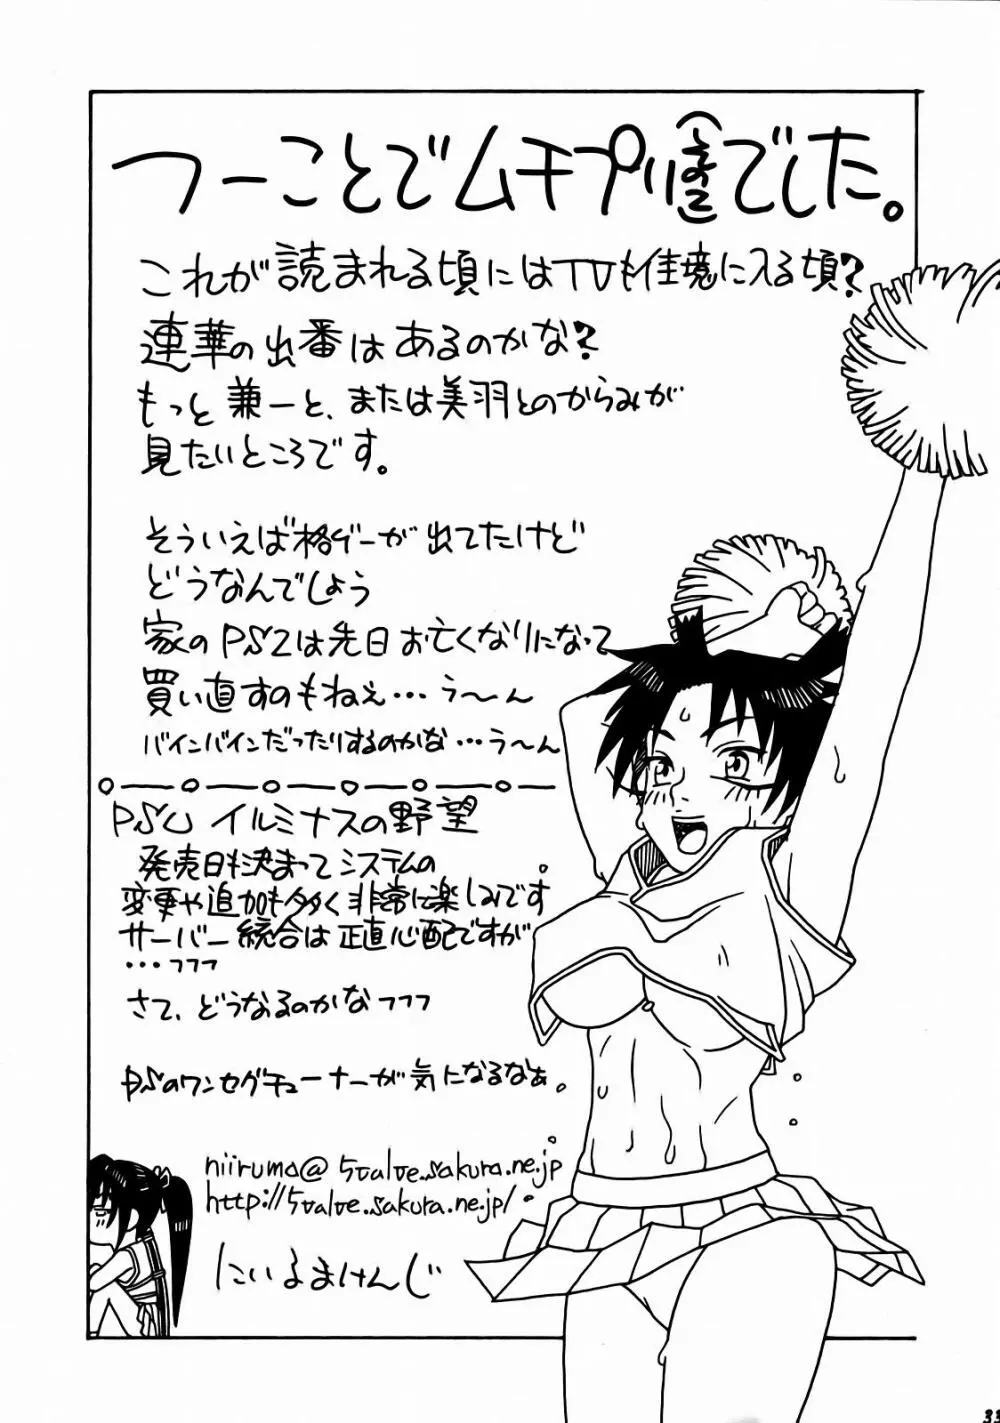 つーことでムチプリ(しのこ)でした。
これが読まれる頃にはTVも佳境に入る頃?
連華の出番はあるのかな?
もっと兼一と、または美羽とのからみが
見たいところです。
そういえば格ゲーが出てたけど
どうなんでしょう
家のPS2は先日お亡くなりになって
買い直すのもねぇ…う〜ん
バインバインだったりするのかな…う〜ん
PSU イルミナスの野望
発売日も決まってシステムの
変更や追加も多く非常に楽しみです。
サーバー統合は正直心配ですが
…フフフ
さて、どうなるのかなフフフ
PSのワンセグチューナーが気になるなぁ。
niiruma@5valve.sakura.ne.jp
http://5valve.sakura.ne.jp/
にいるまけんじ
33